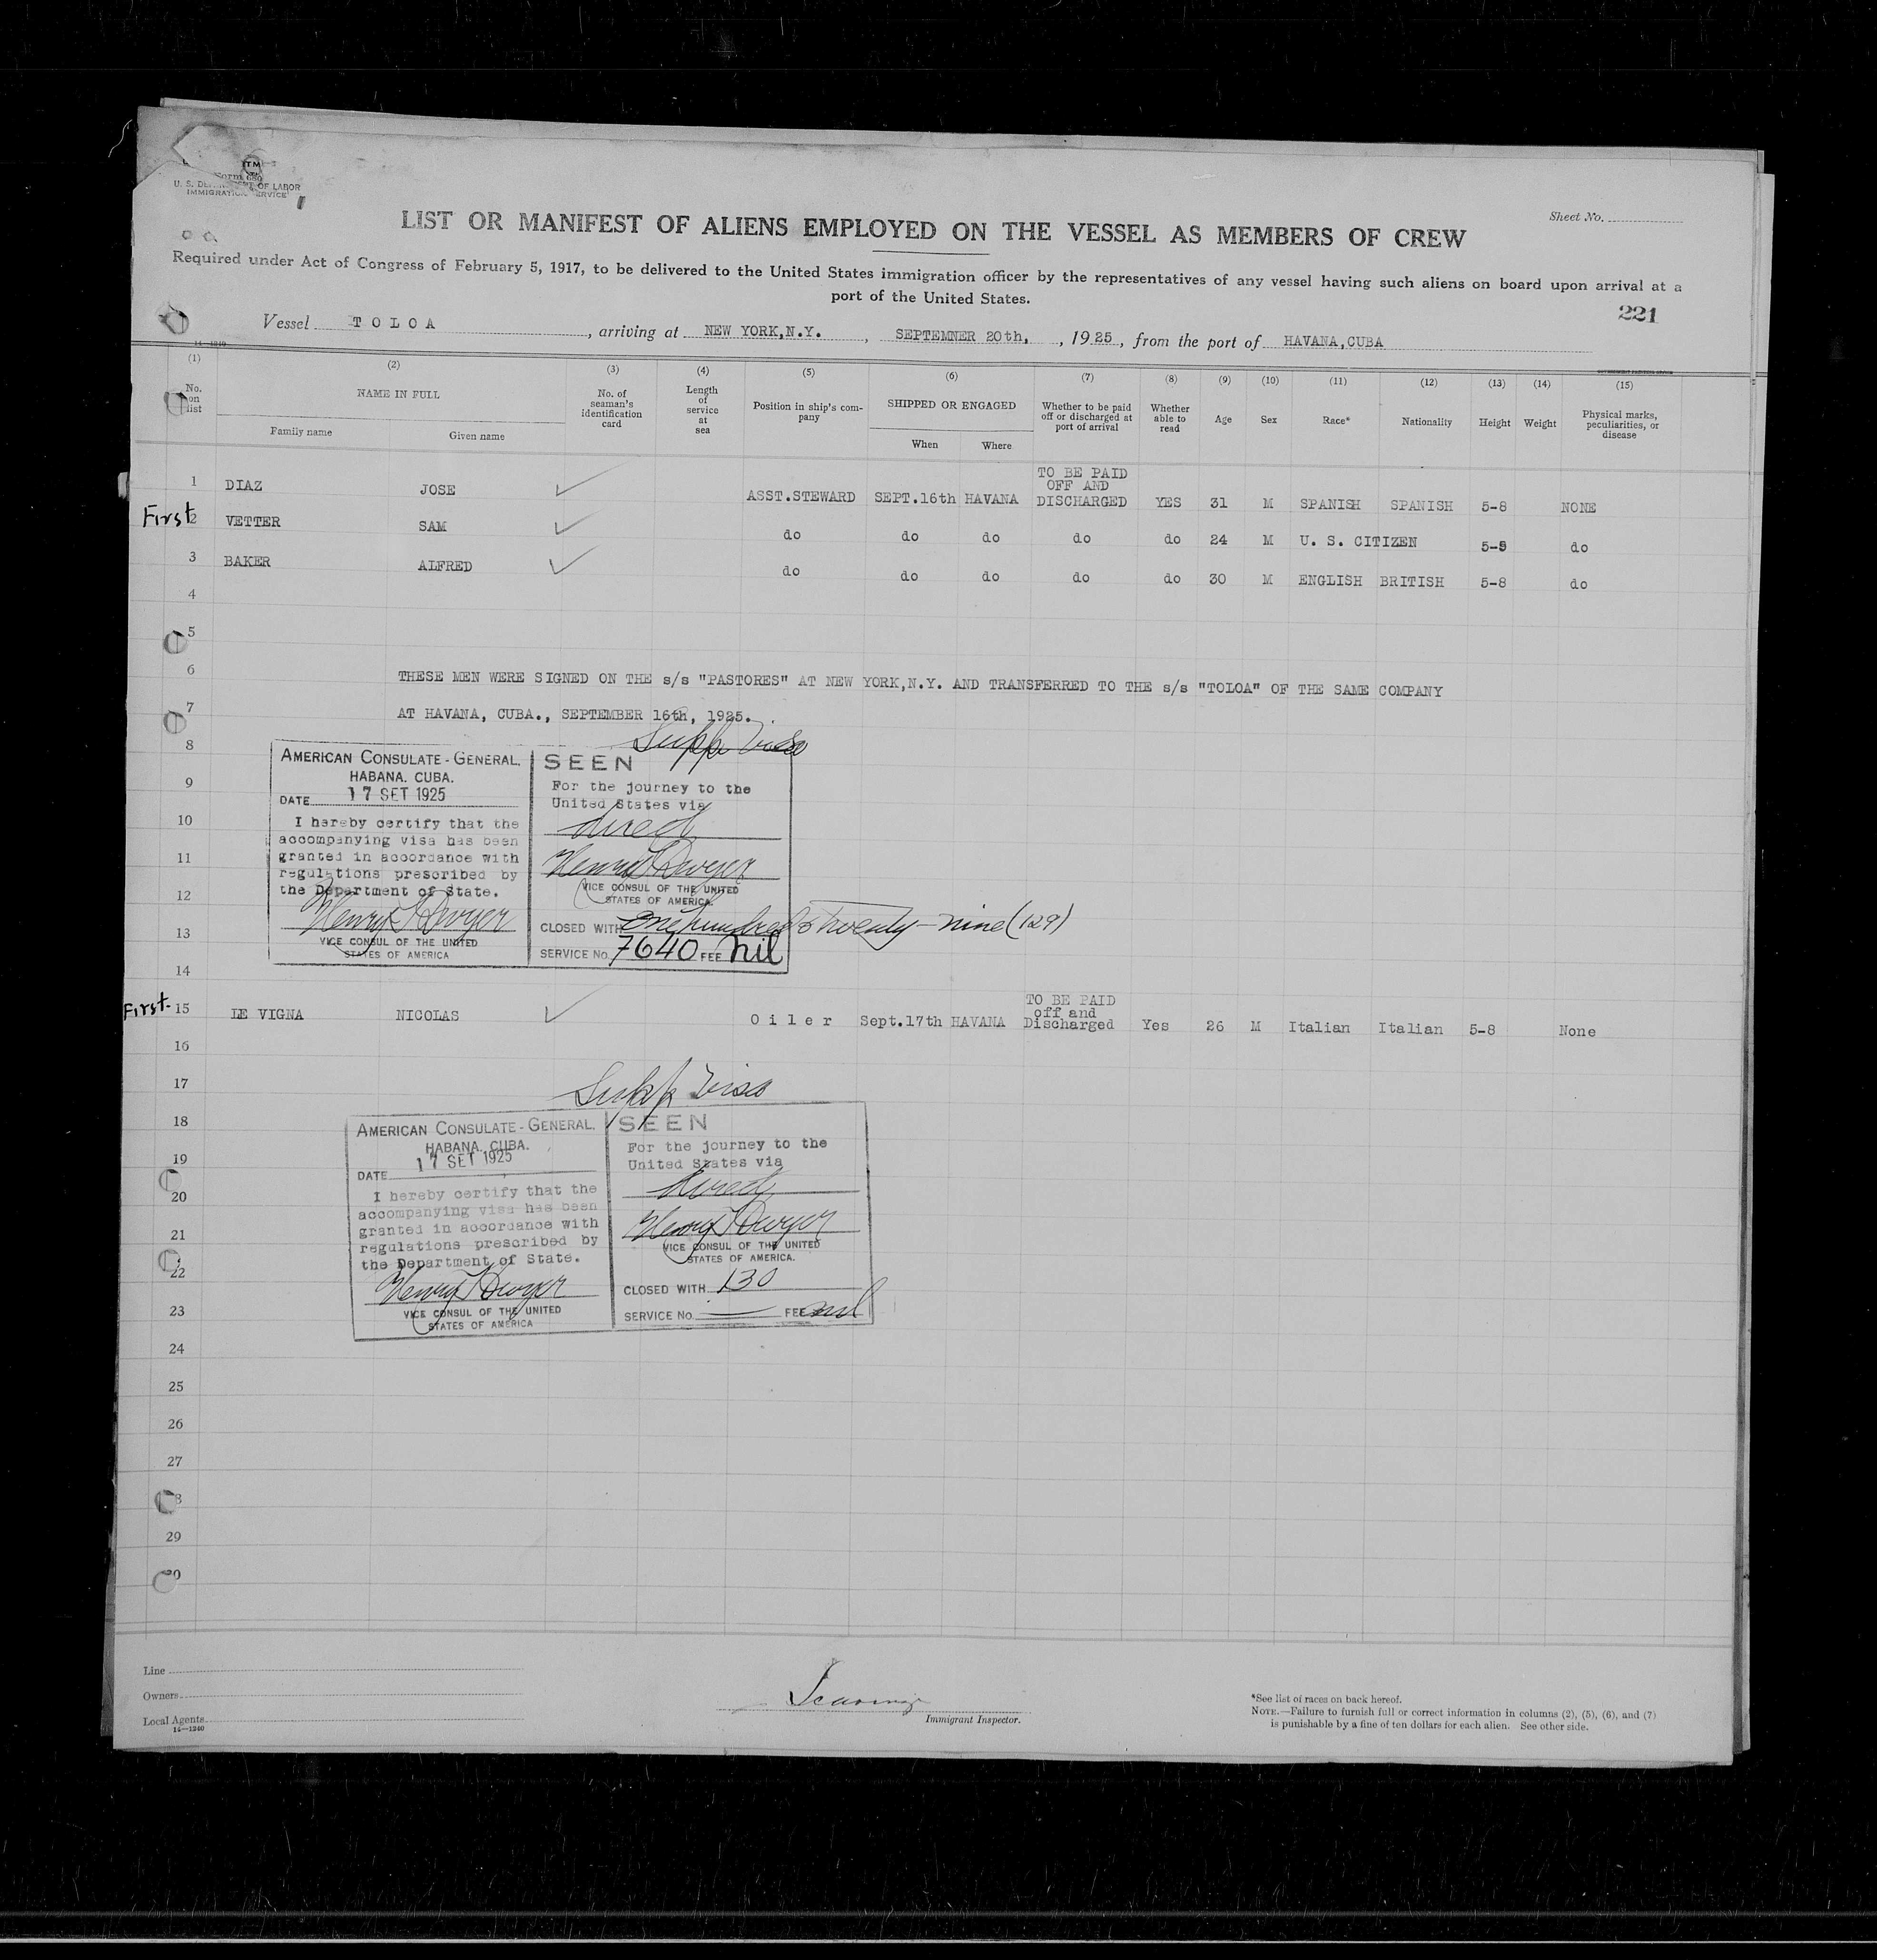 ITM
Form 680
U. S. DEPARTMENT OF LABOR
IMMIGRATION SERVICE
Sheet No.
LIST OR MANIFEST OF ALIENS EMPLOYED ON THE VESSEL AS MEMBERS OF CREW
Required under Act of Congress of February 5, 1917, to be delivered to the United States immigration officer by the representatives of any vessel having such aliens on board upon arrival at a
port of the United States.
221
Vessel TOLOA, arriving at NEW YORK,N.Y., SEPTEMNER 20th, , 1925, from the port of HAVANA,CUBA
14—1240
(1) (2) (3) (4) (5) (6) (7) (8) (9) (10) (11) (12) (13) (14) (15)
No. on list NAME IN FULL Family name Given name No. of seaman's identification card Length of service at sea Position in ship's company SHIPPED OR ENGAGED When Where Whether to be paid off or discharged at port of arrival Whether able to read Age Sex Race* Nationality Height Weight Physical marks, peculiarities, or disease
1 DIAZ JOSE ASST.STEWARD SEPT.16th HAVANA TO BE PAID OFF AND DISCHARGED YES 31 M SPANISH SPANISH 5-8 NONE
First 2 VETTER SAM do do do do do 24 M U. S. CITIZEN 5-5 do
3 BAKER ALFRED do do do do do 30 M ENGLISH BRITISH 5-8 do
4
5
6 THESE MEN WERE SIGNED ON THE s/s "PASTORES" AT NEW YORK,N.Y. AND TRANSFERRED TO THE s/s "TOLOA" OF THE SAME COMPANY
7 AT HAVANA, CUBA., SEPTEMBER 16th, 1925.
Supp Visa
8
9
10
11
12
13
14
AMERICAN CONSULATE-GENERAL.
HABANA. CUBA.
DATE 17 SET 1925
I hereby certify that the
accompanying visa has been
granted in accordance with
regulations prescribed by
the Department of State.
Henry T Dwyer
VICE CONSUL OF THE UNITED
STATES OF AMERICA
SEEN
For the journey to the
United States via
direct
Henry T Dwyer
VICE CONSUL OF THE UNITED
STATES OF AMERICA.
CLOSED WITH One hundred & Twenty-nine (129)
SERVICE No. 7640 FEE nil
First- 15 LE VIGNA NICOLAS Oiler Sept.17th HAVANA TO BE PAID off and Discharged Yes 26 M Italian Italian 5-8 None
16
17
Supp Visa
18
19
20
21
22
23
AMERICAN CONSULATE-GENERAL.
HABANA. CUBA.
DATE 17 SET 1925
I hereby certify that the
accompanying visa has been
granted in accordance with
regulations prescribed by
the Department of State.
Henry T Dwyer
VICE CONSUL OF THE UNITED
STATES OF AMERICA
SEEN
For the journey to the
United States via
direct
Henry T Dwyer
VICE CONSUL OF THE UNITED
STATES OF AMERICA.
CLOSED WITH 130
SERVICE No. FEE nil
24
25
26
27
29
Line
Owners
Local Agents
14—1240
Immigrant Inspector.
*See list of races on back hereof.
NOTE.—Failure to furnish full or correct information in columns (2), (5), (6), and (7)
is punishable by a fine of ten dollars for each alien. See other side.